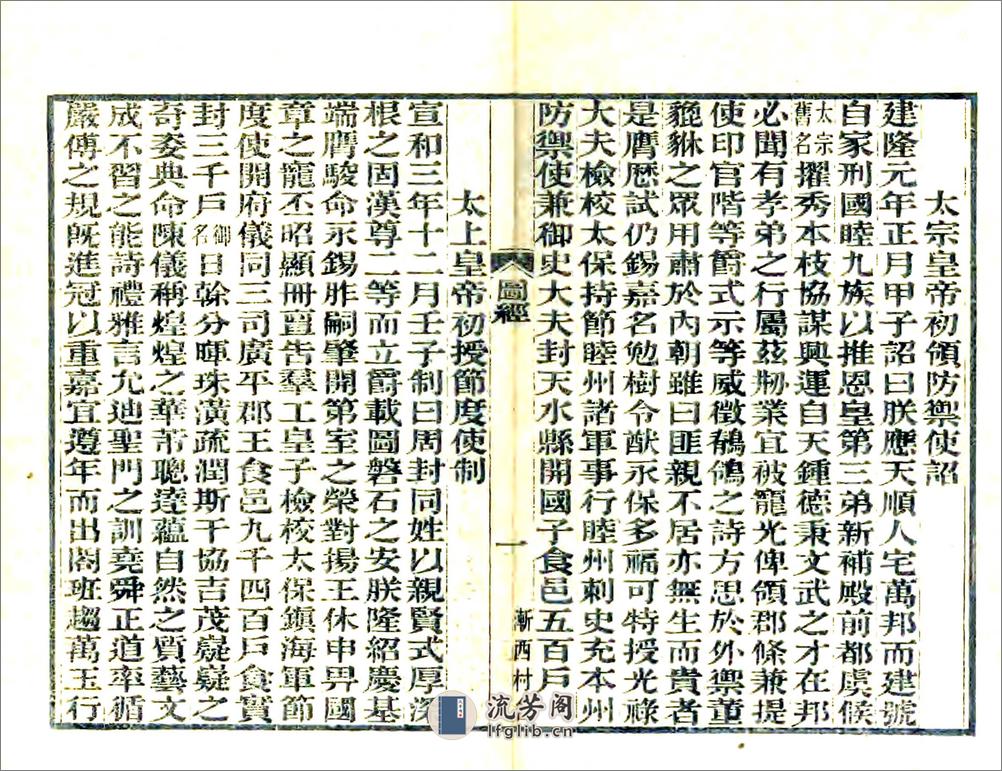 太宗皇帝初領防禦使詔
建隆元年正月甲子詔曰朕應天順人宅萬邦而建號
自家刑國睦九族以推恩皇第三弟新補殿前都虞候
太宗舊名擢秀本枝協謀興運自天鍾德秉文武之才在邦
必聞有孝弟之行屬茲刱業宜被寵光俾領郡條兼提
使印官階等爵式示等威徵鶺鴒之詩方思於外禦董
貔貅之眾用肅於內朝雖曰匪親不居亦無生而貴者
是膺歷試仍錫嘉名勉樹令猷永保多福可特授光祿
大夫檢校太保持節睦州諸軍事行睦州刺史充本州
防禦使兼御史大夫封天水縣開國子食邑五百戶
圖經
一
漸西村
太上皇帝初授節度使制
宣和三年十二月壬子制曰周封同姓以親賢式厚深
根之固漢尊二等而立爵載圖磐石之安朕隆紹慶基
端膺駿命永錫胙嗣肇開第室之榮對揚王休申畀國
章之寵丕昭顯冊亶告羣工皇子檢校太保鎮海軍節
度使開府儀同三司廣平郡王食邑九千四百戶食實
封三千戶御名日榦分暉珠潢疏潤斯干協吉茂嶷嶷之
奇委典命陳儀稱煌煌之華芾聰達蘊自然之質藝文
成不習之能詩禮雅言允迪聖門之訓堯舜正道率循
嚴傅之規旣進冠以重嘉宜遵年而出閤班趨萬玉行
流芳阁
lfglib.cn